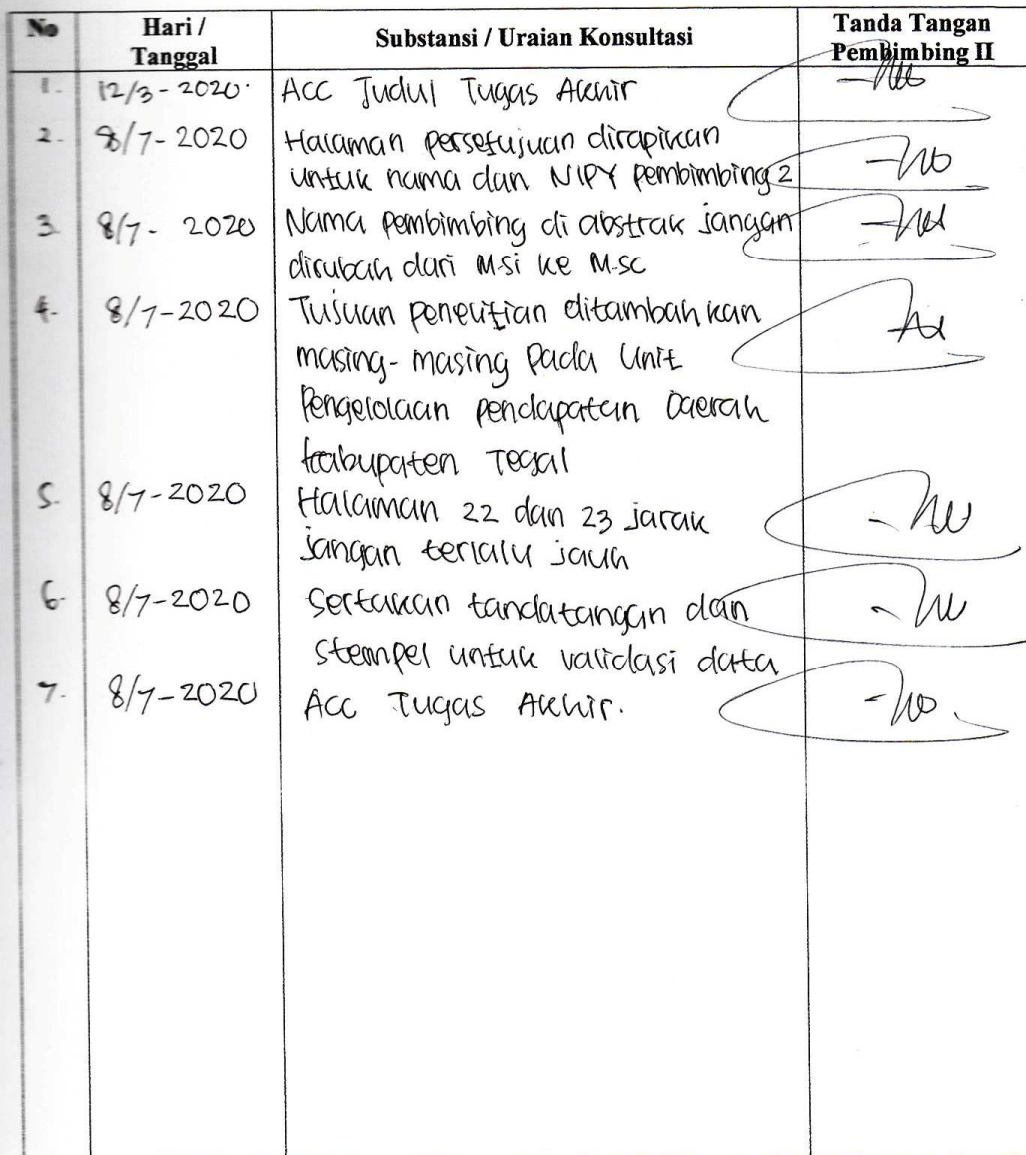 No Hari / Tanggal Substansi / Uraian Konsultasi Tanda Tangan Pembimbing II
1. 12/3 - 2020. Acc Judul Tugas Akhir
2. 8/7 - 2020 Halaman persetujuan dirapikan
untuk nama dan NIPY pembimbing 2
3. 8/7 - 2020 Nama pembimbing di abstrak jangan
dirubah dari M.si ke M.sc
4. 8/7 - 2020 Tujuan penelitian ditambahkan
masing - masing pada Unit
Pengelolaan pendapatan Daerah
kabupaten Tegal
5. 8/7 - 2020 Halaman 22 dan 23 jarak
jangan terlalu jauh
6. 8/7 - 2020 Sertakan tandatangan dan
stempel untuk validasi data
7. 8/7 - 2020 Acc Tugas Akhir.